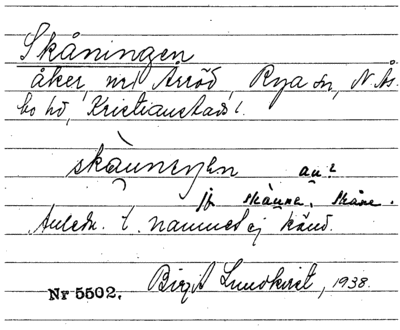 Skåningen
åker, nr 1 Arröd, Rya sn, N. Ås-
bo hd, Kristianstads l.
skàunengen au?
jfr skàuna, Skåne.
Anledn. t. namnet ej känd.
Nr 5502. Birgit Lundkvist, 1938.